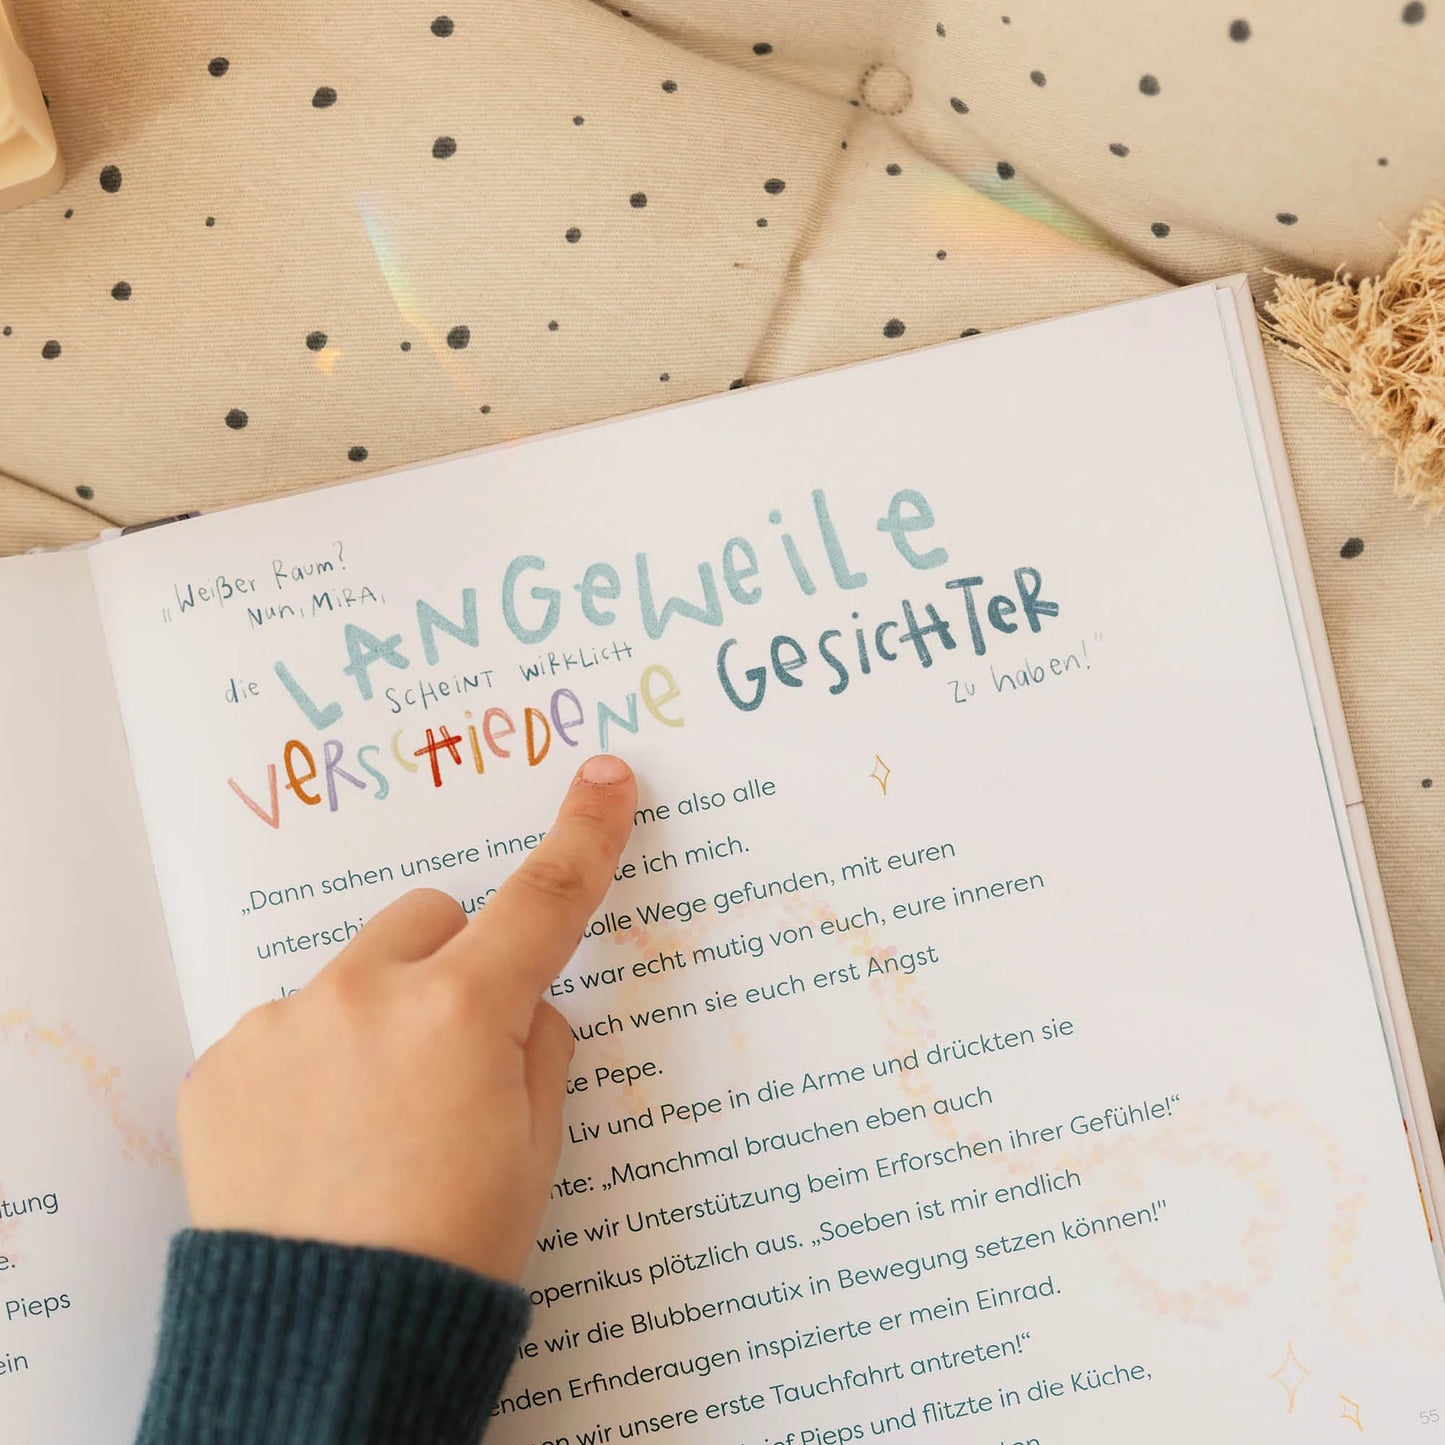 „Weißer Raum?
Nun, Mira,
die LANGEWEILE
scheint wirklich
VERSCHIEDENE GESICHTER
zu haben!"
„Dann sahen unsere also alle
ich mich.
Wege gefunden, mit euren
Es war echt mutig von euch, eure inneren
Auch wenn sie euch erst Angst
Pepe.
Liv und Pepe in die Arme und drückten sie
„Manchmal brauchen eben auch
wie wir Unterstützung beim Erforschen ihrer Gefühle!“
plötzlich aus. „Soeben ist mir endlich
wir die Blubbernautix in Bewegung setzen können!"
Erfinderaugen inspizierte er mein Einrad.
wir unsere erste Tauchfahrt antreten!“
Pieps und flitzte in die Küche,
55
Pieps